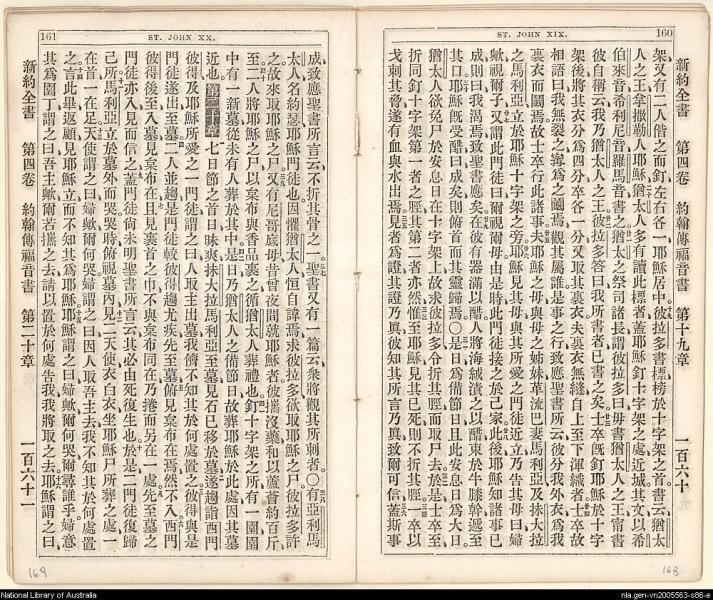 160
ST. JOHN XIX.
新約全書　第四卷　約翰傳福音書　第十九章　一百六十
架又有二人偕之而釘左右各一耶穌居中彼拉多書標榜於十字架之首書云猶太
人之王拿撒勒人耶穌猶太人多有讀此標者蓋耶穌釘十字架之處近城其文以希
伯來音希利尼音羅馬音書之猶太人之祭司諸長謂彼拉多曰毋書猶太人之王甯書
彼自稱云我乃猶太人之王彼拉多答曰我所書者已書之矣士卒既釘耶穌於十字
架後將其衣分爲四分卒各一分又取其裏衣夫裏衣無縫自上至下渾織者士卒故
相語曰我無裂之爲之鬮焉觀其屬誰是事之行致應聖書所云彼分我外衣爲我
裏衣而鬮焉故士卒行此諸事夫耶穌之母與母之姊妹革流巴妻馬利亞及抹大拉
之馬利亞立於耶穌十字架之旁耶穌見其母與其所愛之門徒近立乃告其母曰婦
歟視爾子又謂此門徒曰爾視爾母由是時此門徒接之於己家此後耶穌知諸事已
成則曰我渴焉致聖書應矣在彼有器滿以醋人將海絨漬之以醋束於牛膝幹遞至
其口耶穌既受醋曰成矣則俯首而其靈歸焉〇是日爲備節日且此安息日爲大日
猶太人欲免尸於安息日在十字架上故求彼拉多令折其脛而取尸去於是士卒至
折同釘十字架第一者之脛其第二者亦然惟至耶穌見其已死則不折其脛一卒以
戈刺其脅遂有血與水出焉見者爲證其證乃眞彼知其所言乃眞致爾可信蓋斯事
161
ST. JOHN XX.
成致應聖書所言云不折其骨之一聖書又有一篇云衆將觀其所刺者〇有亞利馬
太人名約瑟耶穌門徒也因懼猶太人恒自諱焉求彼拉多欲取耶穌之尸彼拉多許
之故來取耶穌之尸又有尼哥底母昔曾夜間就耶穌者彼攜沒藥和以蘆薈約百斤
至二人將耶穌之尸以枲布與香品裹之循猶太人葬禮也釘十字架之所有一園園
中有一新墓從未有人葬於其中是日乃猶太人之備節日故葬耶穌於此處因其墓
近也第二十章七日節之首日昧爽抹大拉馬利亞至墓見石已移於墓遂趨詣西門
彼得及耶穌所愛之一門徒謂之曰人取主出墓我儕不知其於何處置之彼得與是
門徒遂出至墓二人並趨是門徒較彼得趨尤疾先至墓俯見枲布在焉然不入西門
彼得後至入墓見枲布在且見裹首之巾不與枲布同在乃捲而另在一處先至墓之
門徒亦入見而信之蓋門徒尙未明聖書所言云其必由死復生也於是二門徒復歸
己所馬利亞立於墓外而哭哭時俯視墓內見二天使衣白衣坐耶穌尸所葬之處一
在首一在足天使謂之曰婦歟爾何哭婦謂之曰因人取吾主去我不知其於何處置
之言此畢返顧見耶穌立而不知其爲耶穌耶穌謂之曰婦歟爾何哭爾尋誰乎婦意
其爲園丁謂之曰吾主歟爾若攜之去請以置於何處告我我將取之去耶穌謂之曰
新約全書　第四卷　約翰傳福音書　第二十章　一百六十一
169
163
National Library of Australia
nla.gen-vn2005563-s86-e